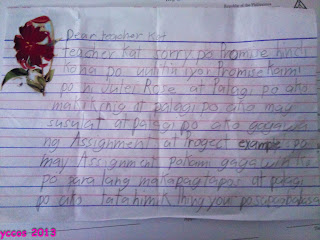 Dear teacher Kat
teacher Kat sorry po Promise hindi
kona po uulitin iyon Promise kami
po ni Juley Rose at Palagi po ako
makikinig at palagi po ako may
susulat at palagi po ako gagawa
ng Assignment at Project example pa
may Assignment pokami gagawin ko
po para lang makapagtapos at palagi
po ako tatahimik thing you posapagbabasa
ycces 2013